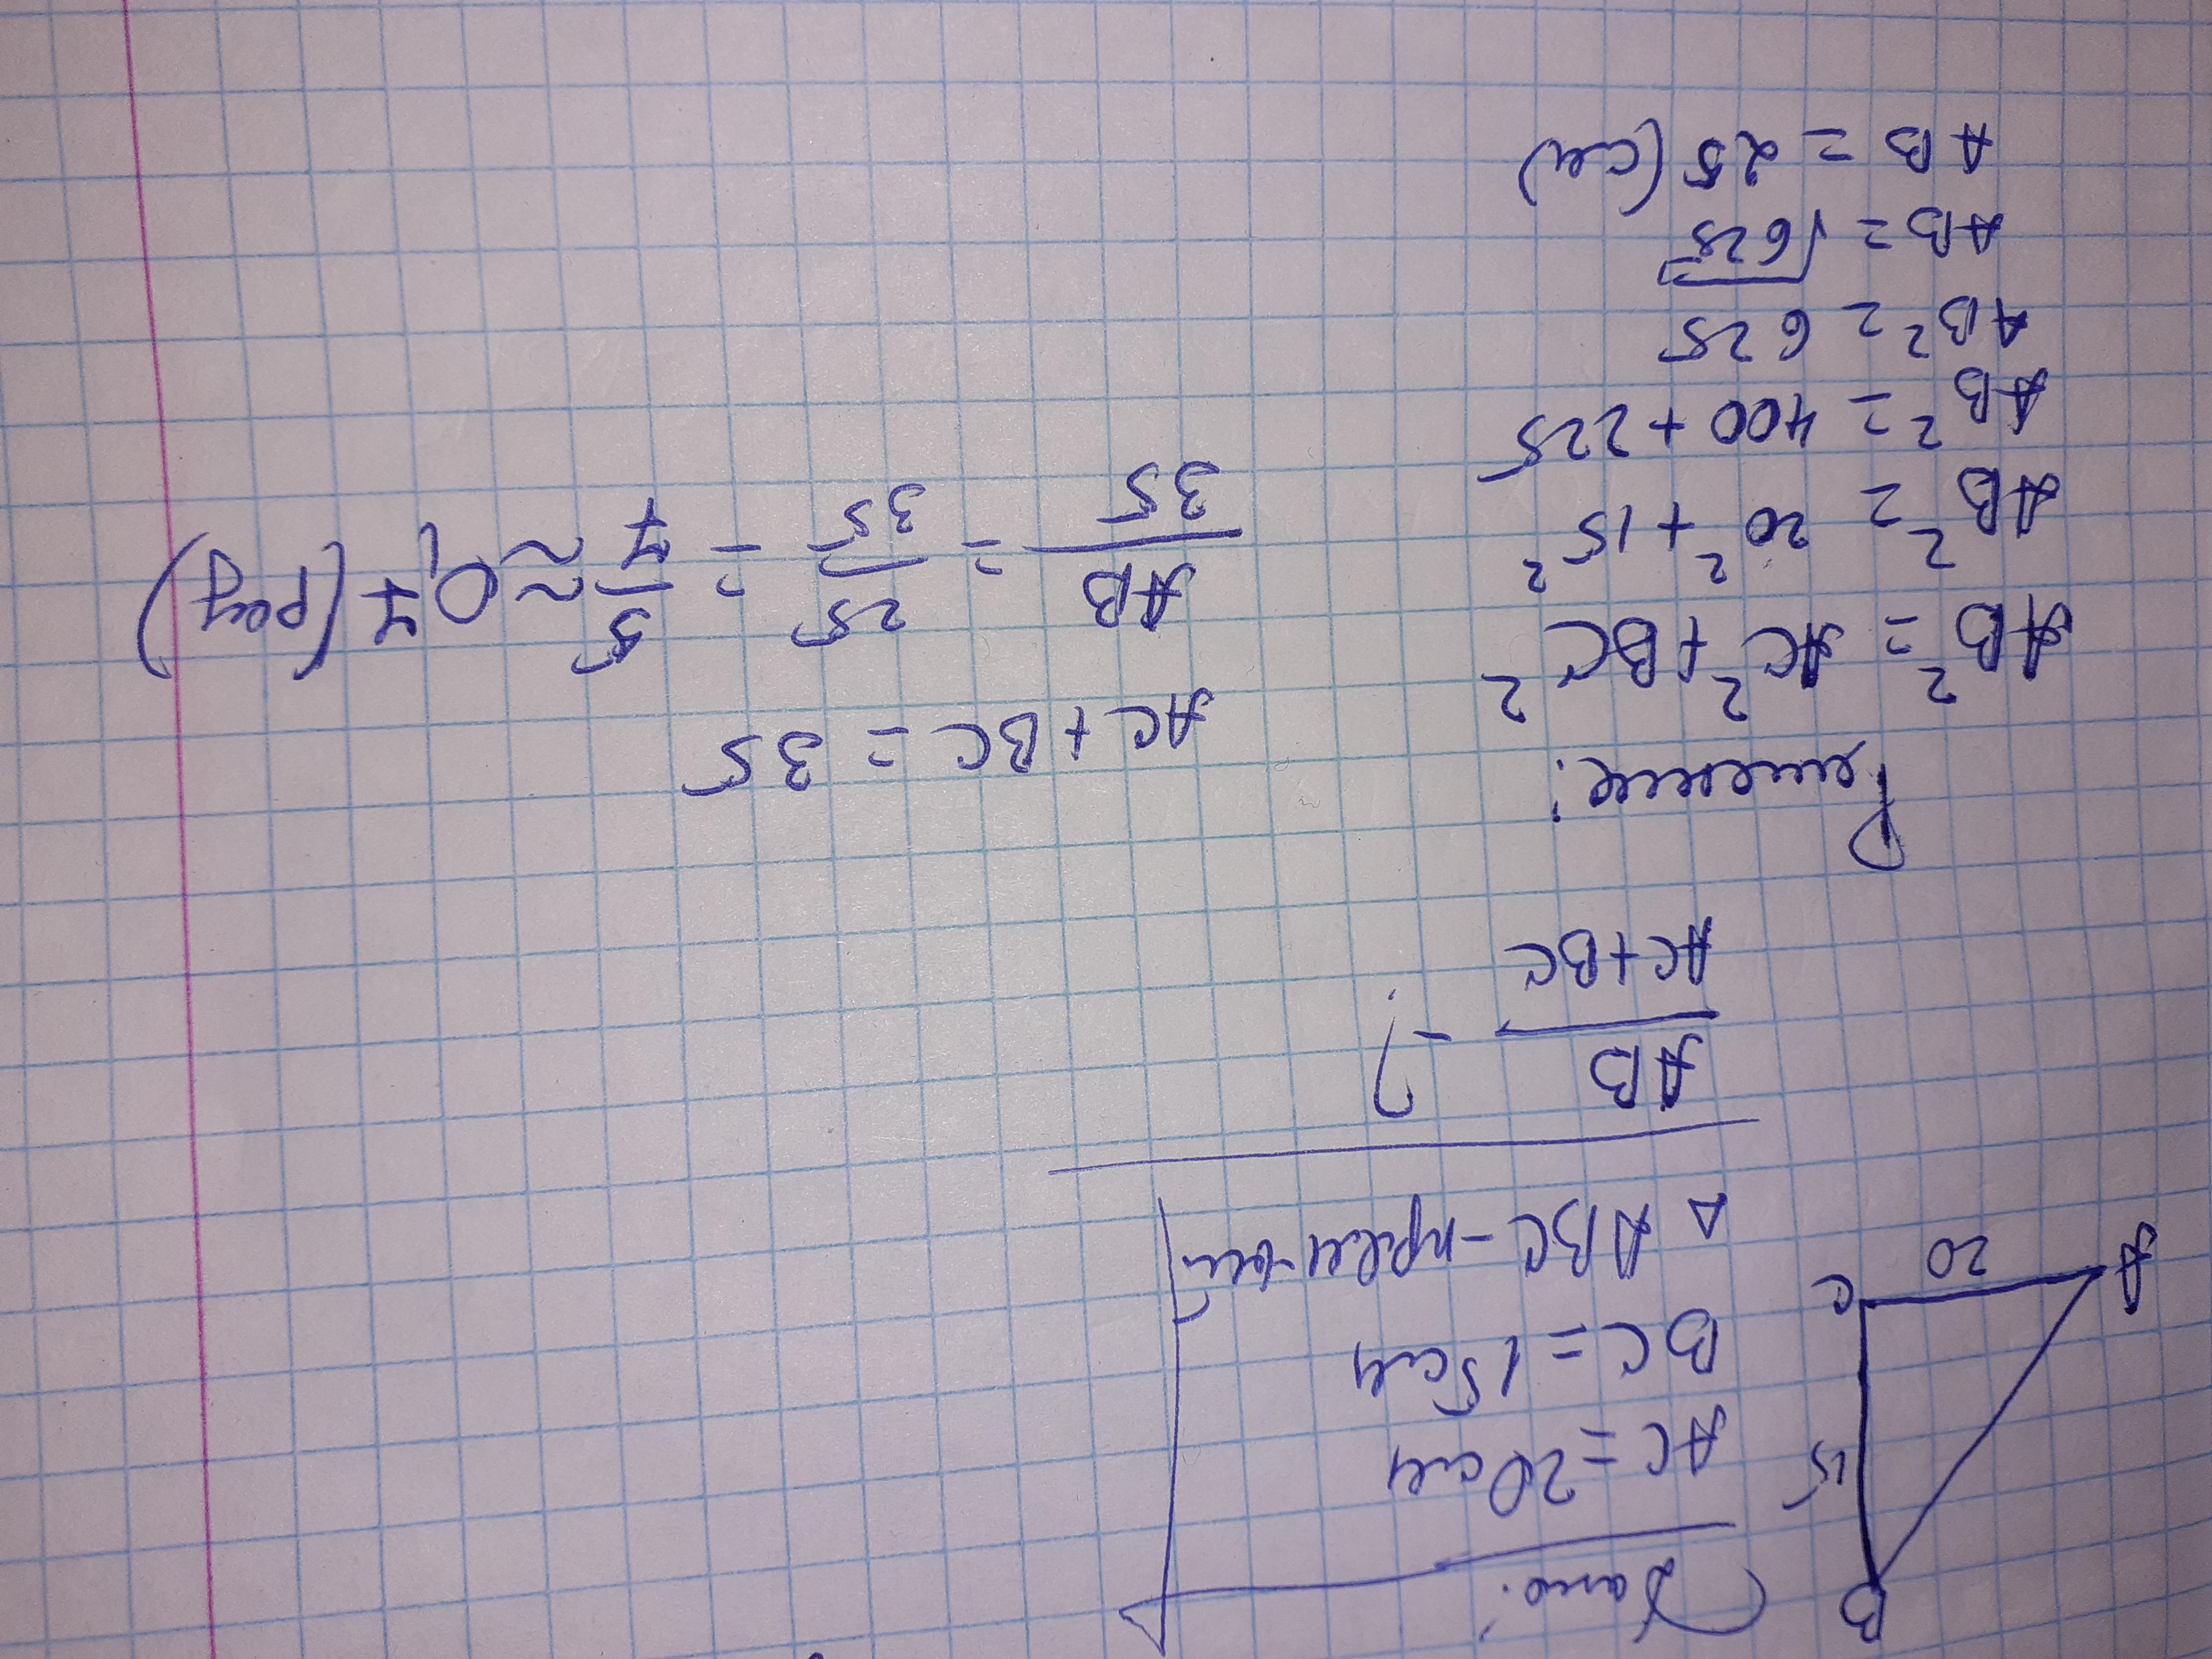 B
15
C
20
A
Дано:
AC = 20см
BC = 15см
△ ABC – прям-ый
AB/AC+BC – ?
Решение:
AB² = AC² + BC²
AB² = 20² + 15²
AB² = 400 + 225
AB² = 625
AB = √625
AB = 25 (см)
AC + BC = 35
AB/35 = 25/35 = 5/7 ≈ 0,7 (раз)